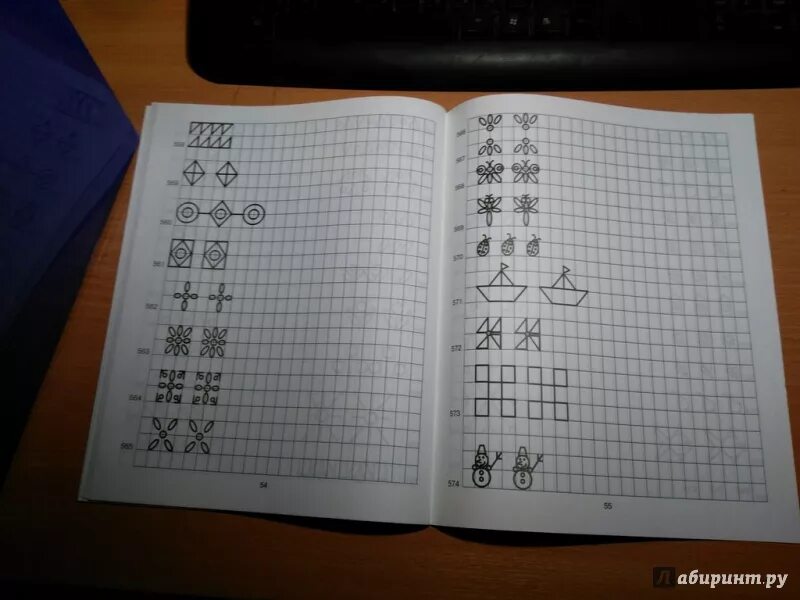 558
559
560
561
562
563
564
565
54
566
567
568
569
570
571
572
573
574
55
Лабиринт.ру